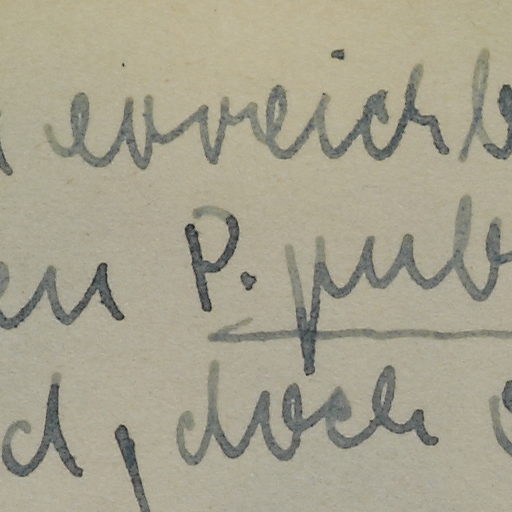 erreichb
en P. pub
d, doch